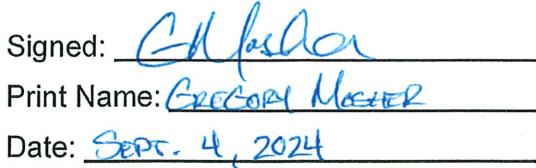 Signed: GMosher
Print Name: GREGORY MOSHER
Date: SEPT. 4, 2024